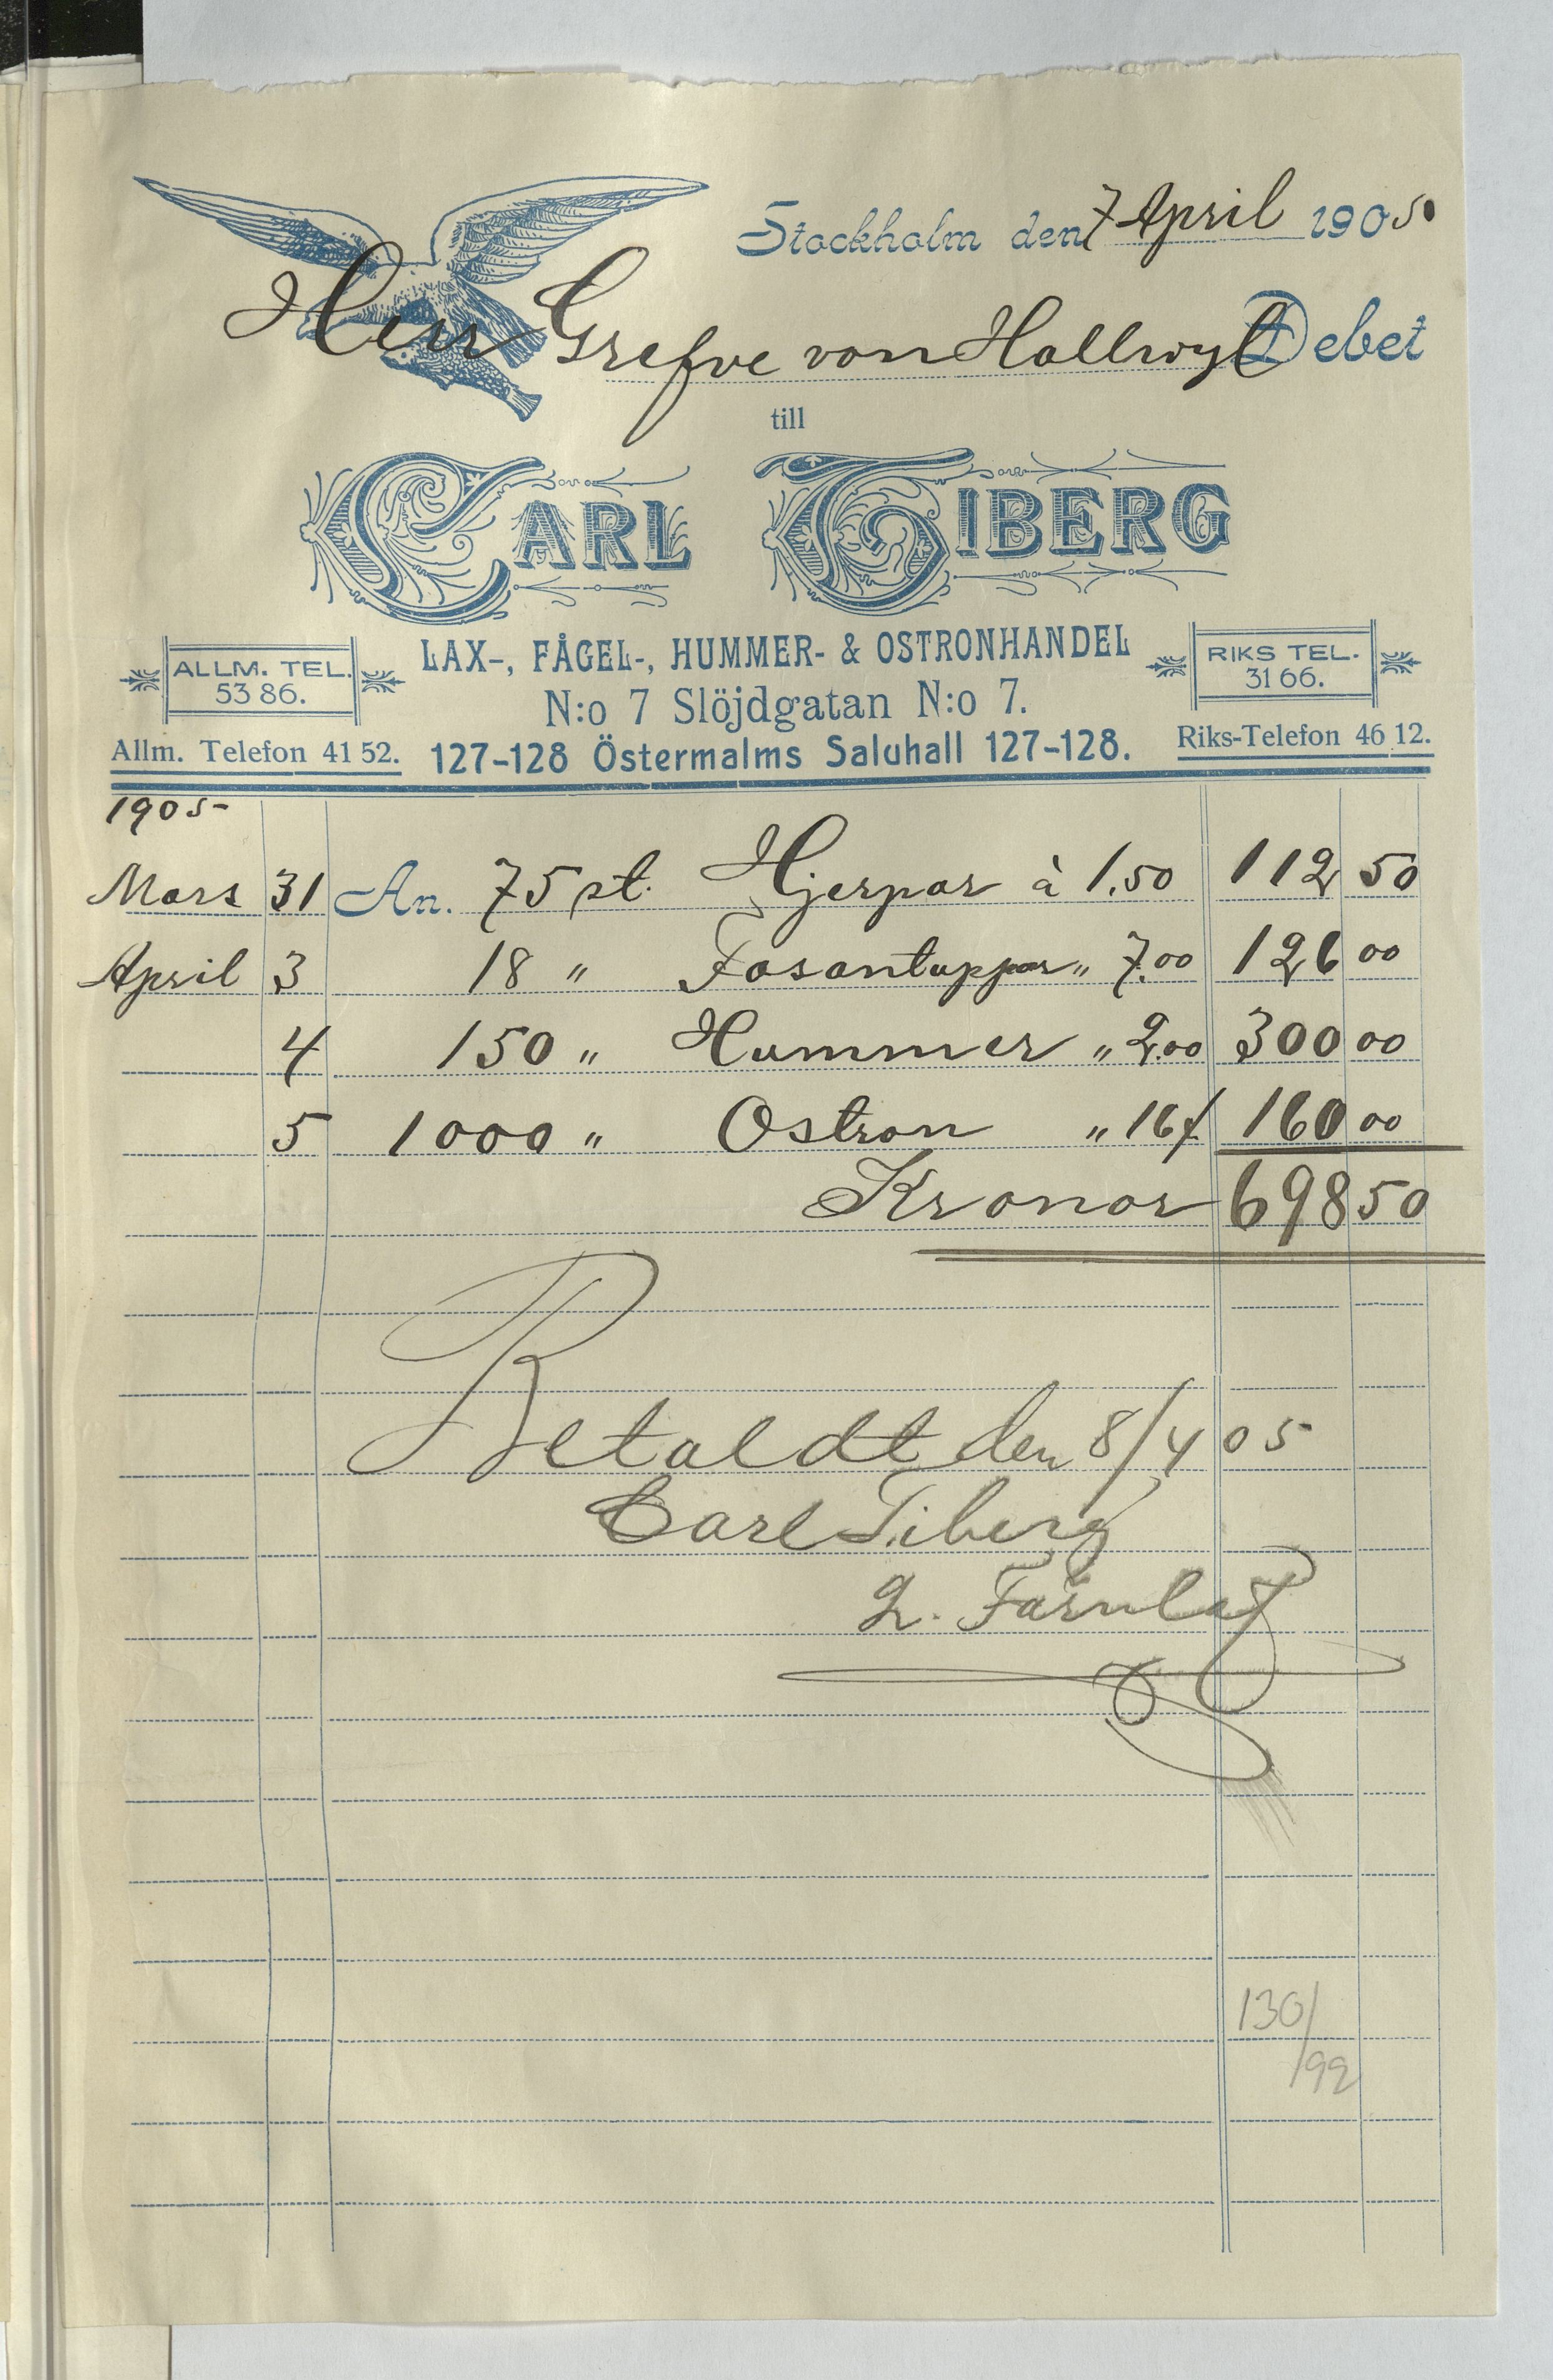 Stockholm den 7 April 1905
Herr Grefve von Hallwyl Debet
till
CARL TIBERG
LAX-, FÅGEL-, HUMMER- & OSTRONHANDEL
ALLM. TEL. 53 86.
N:o 7 Slöjdgatan N:o 7.
RIKS TEL. 31 66.
Allm. Telefon 41 52. 127-128 Östermalms Saluhall 127-128. Riks-Telefon 46 12.
1905
Mars 31 An. 75 st. Hjerpar à 1.50 112 50
April 3 18 " Fasantuppar " 7.00 126 00
4 150 " Hummer " 2.00 300 00
5 1000 " Ostron " 16/ 160 00
Kronor 698 50
Betaldt den 8/4 05
Carl Tiberg
130/
/92